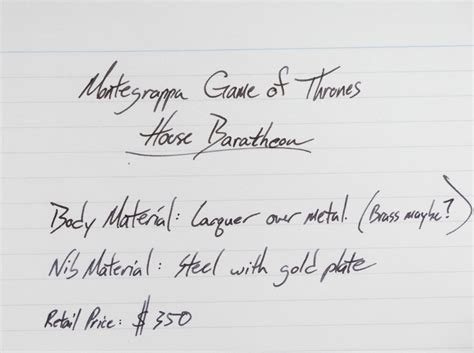 Montegrappa Game of Thrones
House Baratheon
Body Material: Lacquer over metal. (Brass maybe?)
Nib Material: Steel with gold plate
Retail Price: $350